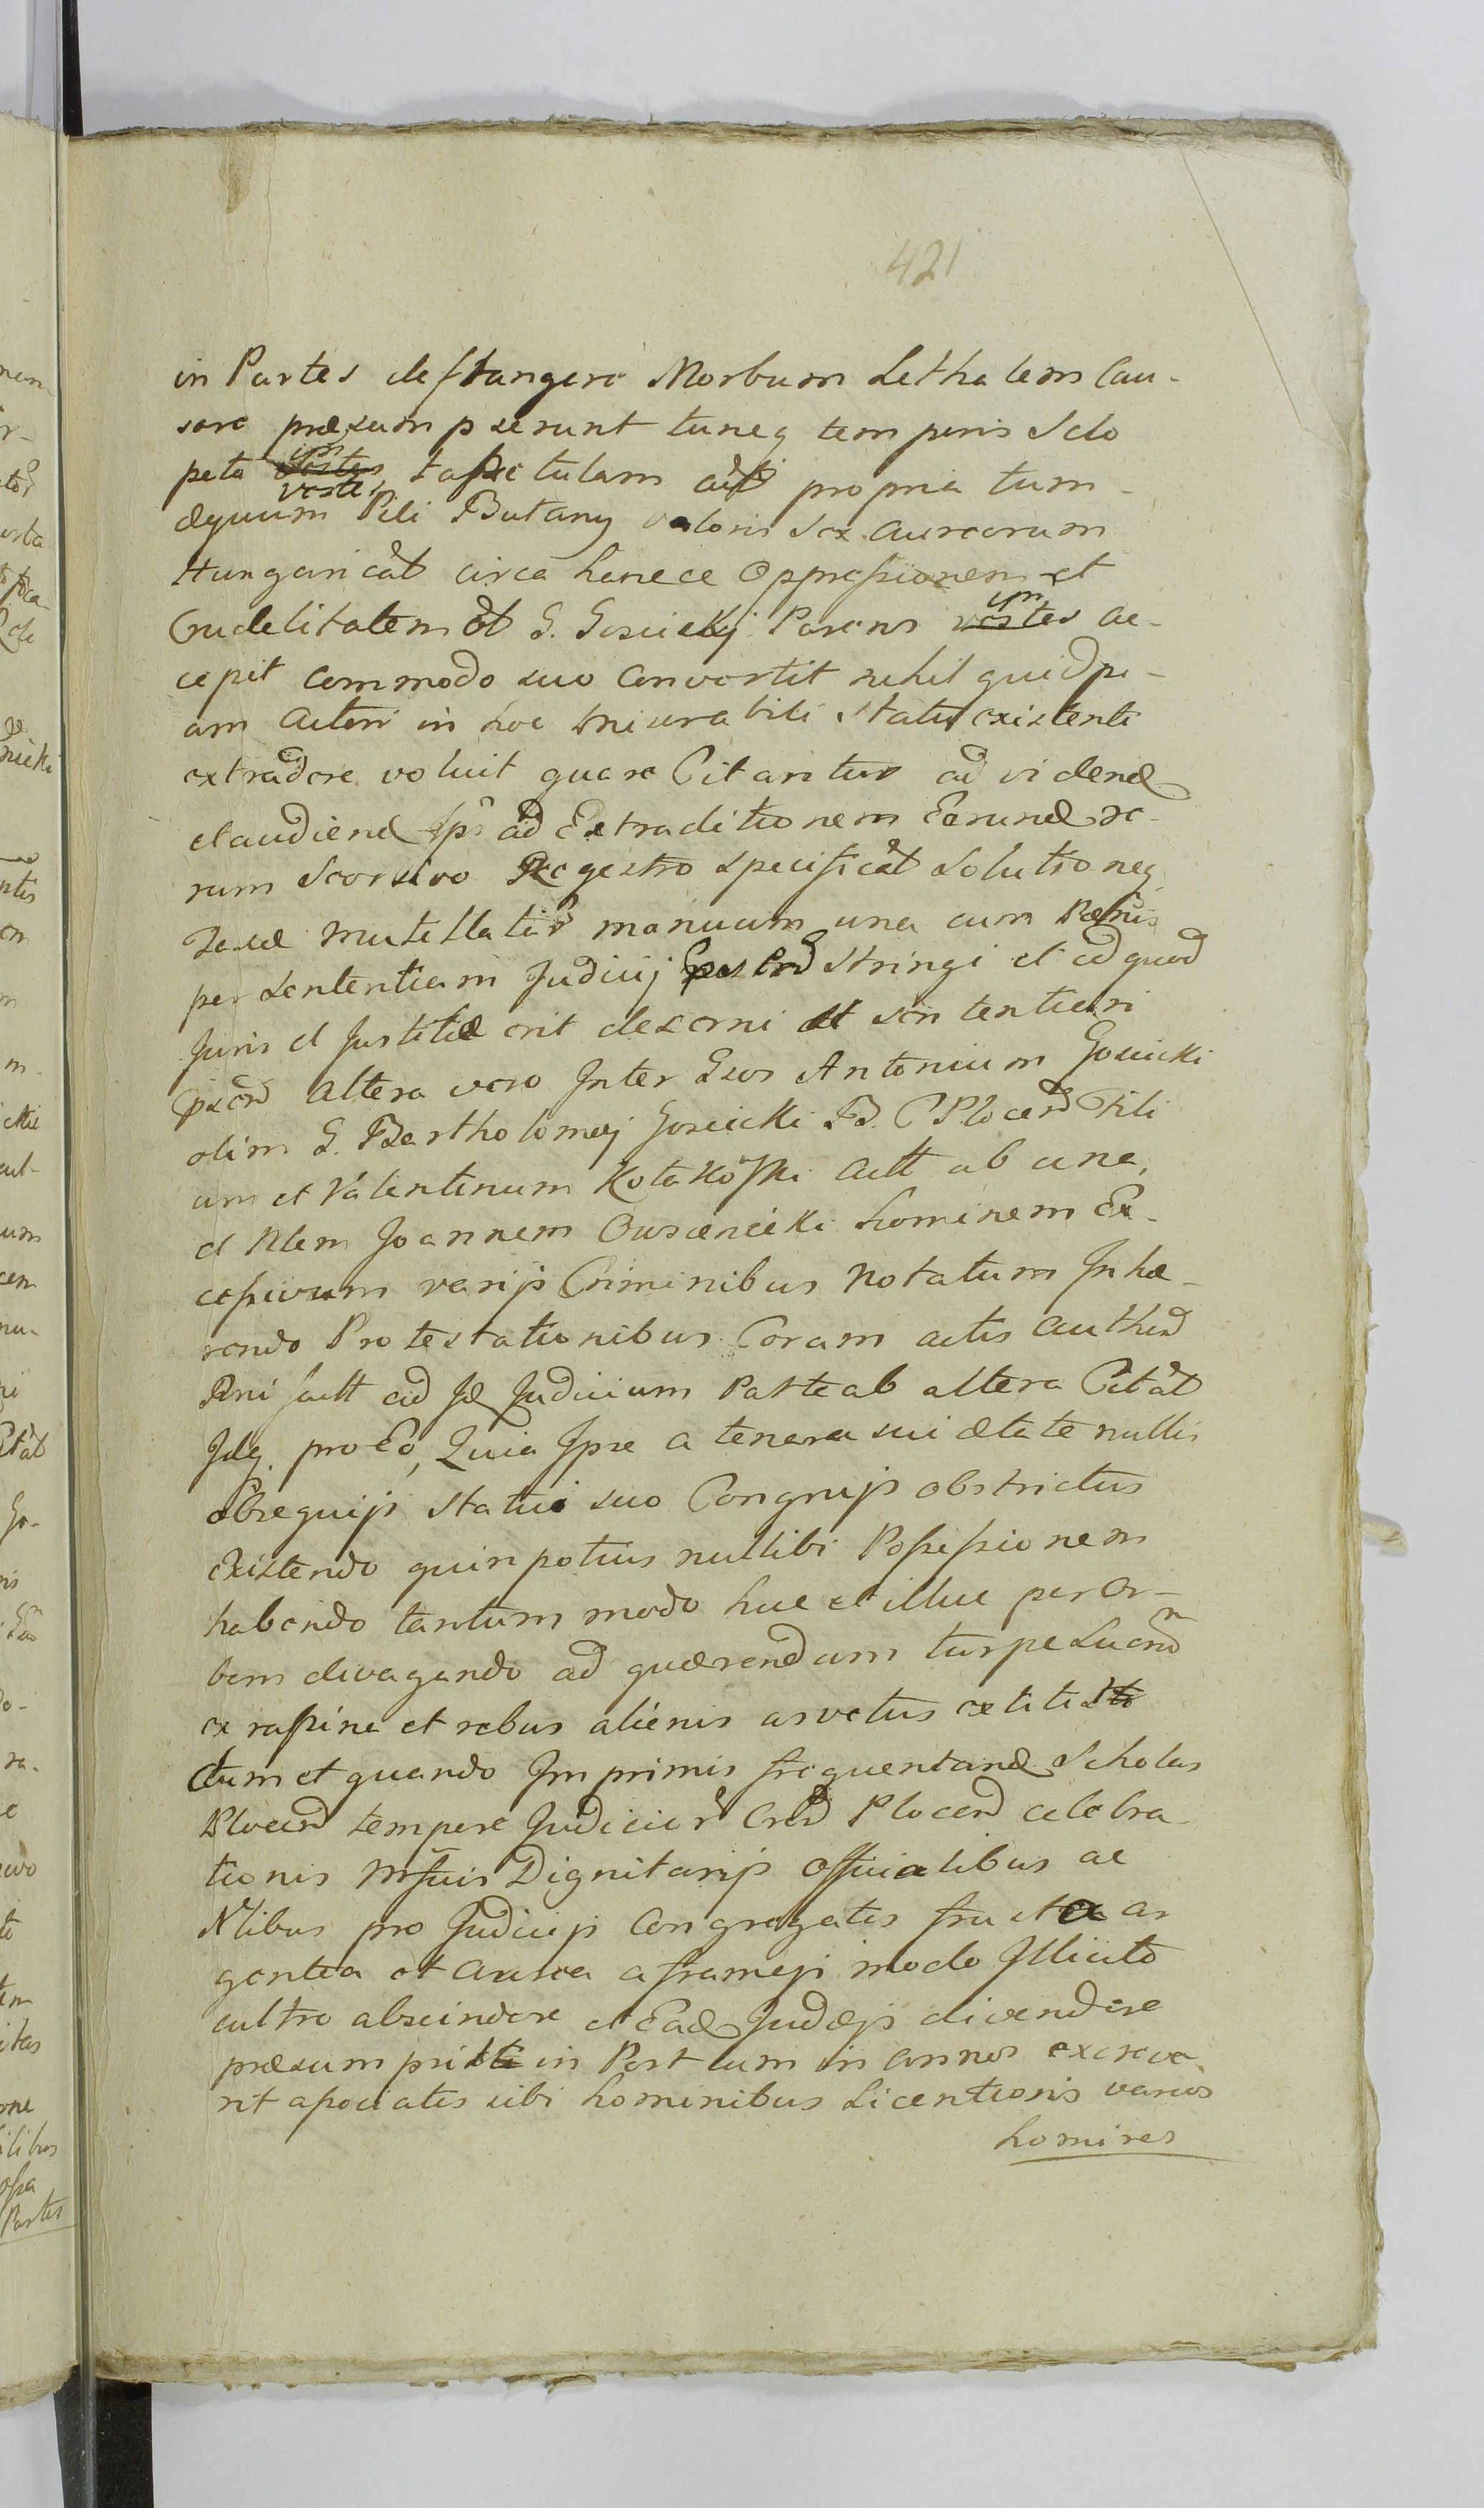 421
in Partes defrangere Morbum Lethalem Cau-
sare præsumpserunt tuncq temporis Sclo
peta ipn vestes tum
æquum Pili Butany valoris Sex Aureorum
Hungaricat circa hancce Oppressionem et
Crudelitatem G. Gosicky Parens ipn vestes ac-
cepit commodo suo convertit nihil quidpi-
am Actori in hoc miserabili Statu existenti
extradere voluit quare Citantur ad vidend
et audiend ad Extraditionem Earund re-
rum Seorsivo Regestro specificat Solutioneq
manuum una cum Pænis
per Sententiam Judicij stringi et ad quod
Juris et Justitiæ erit decerni et sententiari
Altera vero Inter Gsos Antonium Gosicki
olim G. Bartholomej Gosicki B. C Plocen Fili
um et Valentinum Kotakoski Actt ab una,
et Nlem Joannem Owsienicki hominem Ex-
cessivum varijs Criminibus notatum Inhæ-
rendo Protestationibus Coram actis Authen
Pni factt ad Id Judicium Parte ab altera Citat
Idq. pro Eo, Quia Ipse a tenera sui ætate nullis
obsequijs statui suo Congrujs obstrictus
existendo quin potius nullibi Possessionem
habendo tantum modo huc et illuc per Or-
bem divagando ad quærendum turpe Lucrum
ex rapina et rebus alienis asvetus extitit
dum et quando Imprimis frequentand Scholas
Plocen tempore Judicior Plocen celebra
tionis Dignitarijs Officialibus ac
Nlibus pro Judicijs Congregatis ar
gentea et aurea a frameis modo Illicito
cultro abscindere et Ead Judæis divendere
præsumpsit in Post cum in annos excreve
rit associatis sibi hominibus Licentiosis varios
homines